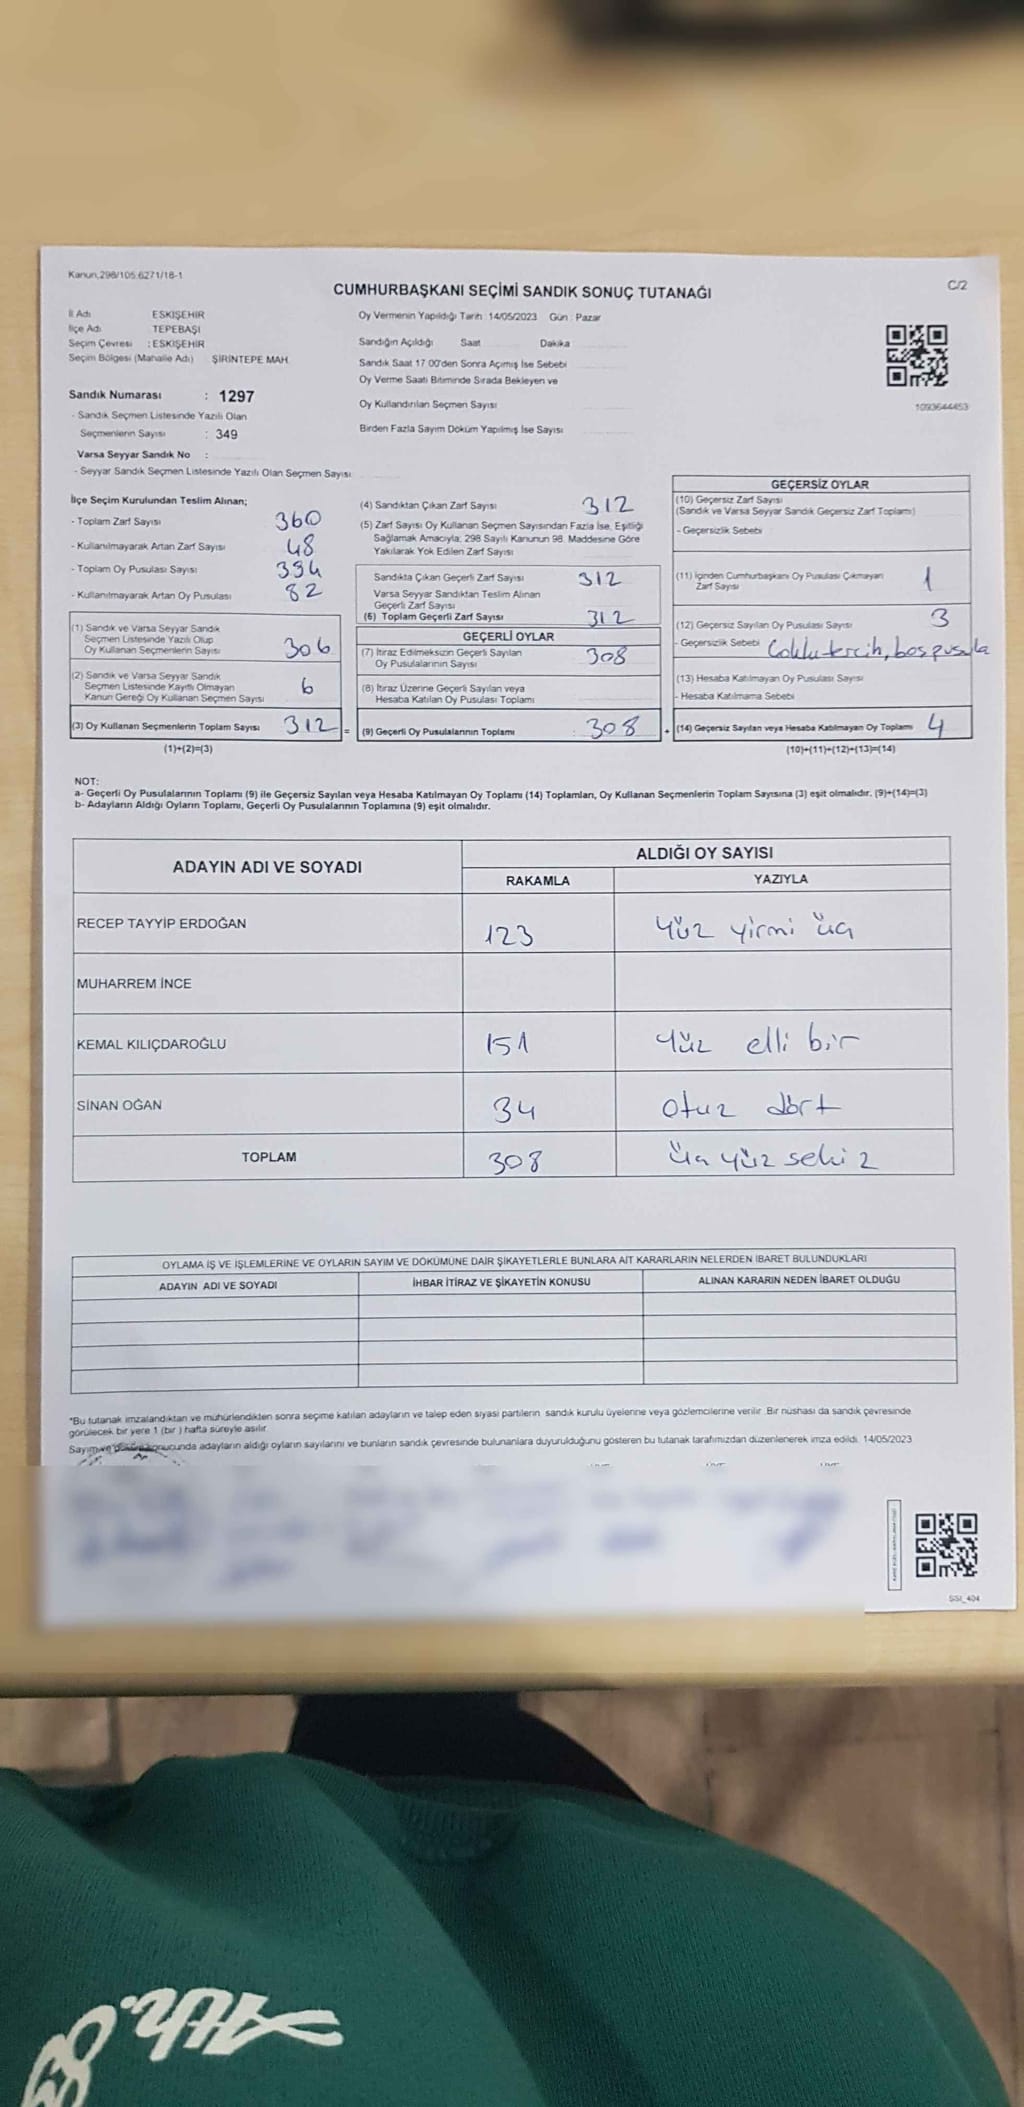 Kanun,298/105.6271/18-1
CUMHURBAŞKANI SEÇİMİ SANDIK SONUÇ TUTANAĞI
C/2
İl Adı ESKİŞEHİR
İlçe Adı : TEPEBAŞI
Seçim Çevresi : ESKİŞEHİR
Seçim Bölgesi (Mahalle Adı) ŞİRİNTEPE MAH.
Sandık Numarası : 1297
- Sandık Seçmen Listesinde Yazılı Olan
Seçmenlerin Sayısı : 349
Varsa Seyyar Sandık No :
- Seyyar Sandık Seçmen Listesinde Yazılı Olan Seçmen Sayısı
Oy Vermenin Yapıldığı Tarih : 14/05/2023 Gün : Pazar
Sandığın Açıldığı Saat Dakika
Sandık Saat 17.00'den Sonra Açımış İse Sebebi
Oy Verme Saati Bitiminde Sırada Bekleyen ve
Oy Kullandırılan Seçmen Sayısı
Birden Fazla Sayım Döküm Yapılmış İse Sayısı
1093644453
İlçe Seçim Kurulundan Teslim Alınan;
- Toplam Zarf Sayısı 360
- Kullanılmayarak Artan Zarf Sayısı 48
- Toplam Oy Pusulası Sayısı 394
- Kullanılmayarak Artan Oy Pusulası 82
(1) Sandık ve Varsa Seyyar Sandık
Seçmen Listesinde Yazılı Olup
Oy Kullanan Seçmenlerin Sayısı 306
(2) Sandık ve Varsa Seyyar Sandık
Seçmen Listesinde Kayıtlı Olmayan
Kanun Gereği Oy Kullanan Seçmen Sayısı 6
(3) Oy Kullanan Seçmenlerin Toplam Sayısı 312 =
(1)+(2)=(3)
(4) Sandıktan Çıkan Zarf Sayısı 312
(5) Zarf Sayısı Oy Kullanan Seçmen Sayısından Fazla İse, Eşitliği
Sağlamak Amacıyla; 298 Sayılı Kanunun 98. Maddesine Göre
Yakılarak Yok Edilen Zarf Sayısı
Sandıkta Çıkan Geçerli Zarf Sayısı 312
Varsa Seyyar Sandıktan Teslim Alınan
Geçerli Zarf Sayısı
(6) Toplam Geçerli Zarf Sayısı 312
GEÇERLİ OYLAR
(7) İtiraz Edilmeksizin Geçerli Sayılan
Oy Pusulalarının Sayısı 308
(8) İtiraz Üzerine Geçerli Sayılan veya
Hesaba Katılan Oy Pusulası Toplamı
(9) Geçerli Oy Pusulalarının Toplamı : 308 +
GEÇERSİZ OYLAR
(10) Geçersiz Zarf Sayısı
(Sandık ve Varsa Seyyar Sandık Geçersiz Zarf Toplamı)
- Geçersizlik Sebebi
(11) İçinden Cumhurbaşkanı Oy Pusulası Çıkmayan
Zarf Sayısı 1
(12) Geçersiz Sayılan Oy Pusulası Sayısı 3
- Geçersizlik Sebebi Çoklu tercih, boş pusula
(13) Hesaba Katılmayan Oy Pusulası Sayısı
- Hesaba Katılmama Sebebi
(14) Geçersiz Sayılan veya Hesaba Katılmayan Oy Toplamı 4
(10)+(11)+(12)+(13)=(14)
NOT:
a- Geçerli Oy Pusulalarının Toplamı (9) ile Geçersiz Sayılan veya Hesaba Katılmayan Oy Toplamı (14) Toplamları, Oy Kullanan Seçmenlerin Toplam Sayısına (3) eşit olmalıdır. (9)+(14)=(3)
b- Adayların Aldığı Oyların Toplamı, Geçerli Oy Pusulalarının Toplamına (9) eşit olmalıdır.
ADAYIN ADI VE SOYADI ALDIĞI OY SAYISI
RAKAMLA YAZIYLA
RECEP TAYYİP ERDOĞAN 123 Yüz yirmi üç
MUHARREM İNCE
KEMAL KILIÇDAROĞLU 151 Yüz elli bir
SİNAN OĞAN 34 otuz dört
TOPLAM 308 üç yüz sekiz
OYLAMA İŞ VE İŞLEMLERİNE VE OYLARIN SAYIM VE DÖKÜMÜNE DAİR ŞİKAYETLERLE BUNLARA AİT KARARLARIN NELERDEN İBARET BULUNDUKLARI
ADAYIN ADI VE SOYADI İHBAR İTİRAZ VE ŞİKAYETİN KONUSU ALINAN KARARIN NEDEN İBARET OLDUĞU
*Bu tutanak imzalandıktan ve mühürlendikten sonra seçime katılan adayların ve talep eden siyasi partilerin sandık kurulu üyelerine veya gözlemcilerine verilir. Bir nüshası da sandık çevresinde
görülecek bir yere 1 (bir ) hafta süreyle asılır.
Sayım ve döküm sonucunda adayların aldığı oyların sayılarını ve bunların sandık çevresinde bulunanlara duyurulduğunu gösteren bu tutanak tarafımızdan düzenlenerek imza edildi. 14/05/2023
SSI_404
Ath.